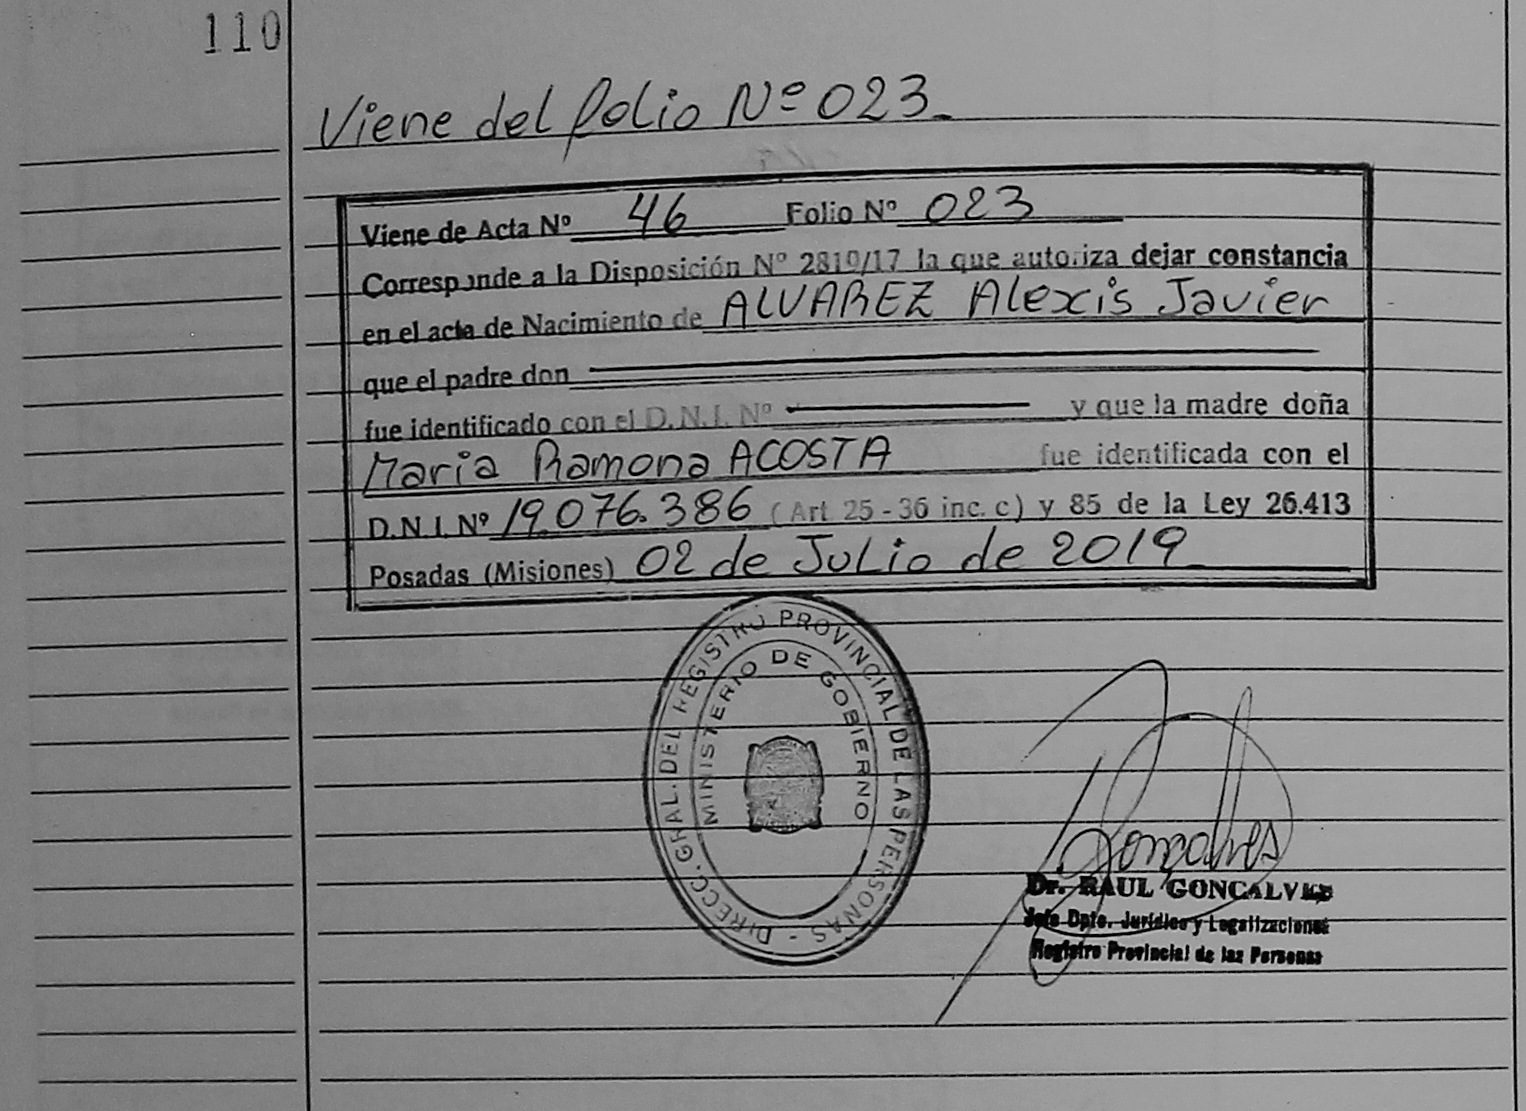 110
Viene del folio Nº 023.
Viene de Acta Nº 46 Folio Nº 023
Corresponde a la Disposición Nº 2810/17 la que autoriza dejar constancia
en el acta de Nacimiento de ALVAREZ Alexis Javier
que el padre don
fue identificado con el D.N.I. Nº y que la madre doña
Maria Ramona ACOSTA fue identificada con el
D.N.I. Nº 19.076.386 (Art 25 - 36 inc. c) y 85 de la Ley 26.413
Posadas (Misiones) 02 de Julio de 2019
DIRECC. GRAL. DEL REGISTRO PROVINCIAL DE LAS PERSONAS -
MINISTERIO DE GOBIERNO
Gonçalves
Dr. RAUL GONCALVES
Jefe Dpto. Jurídico y Legalizaciones
Registro Provincial de las Personas